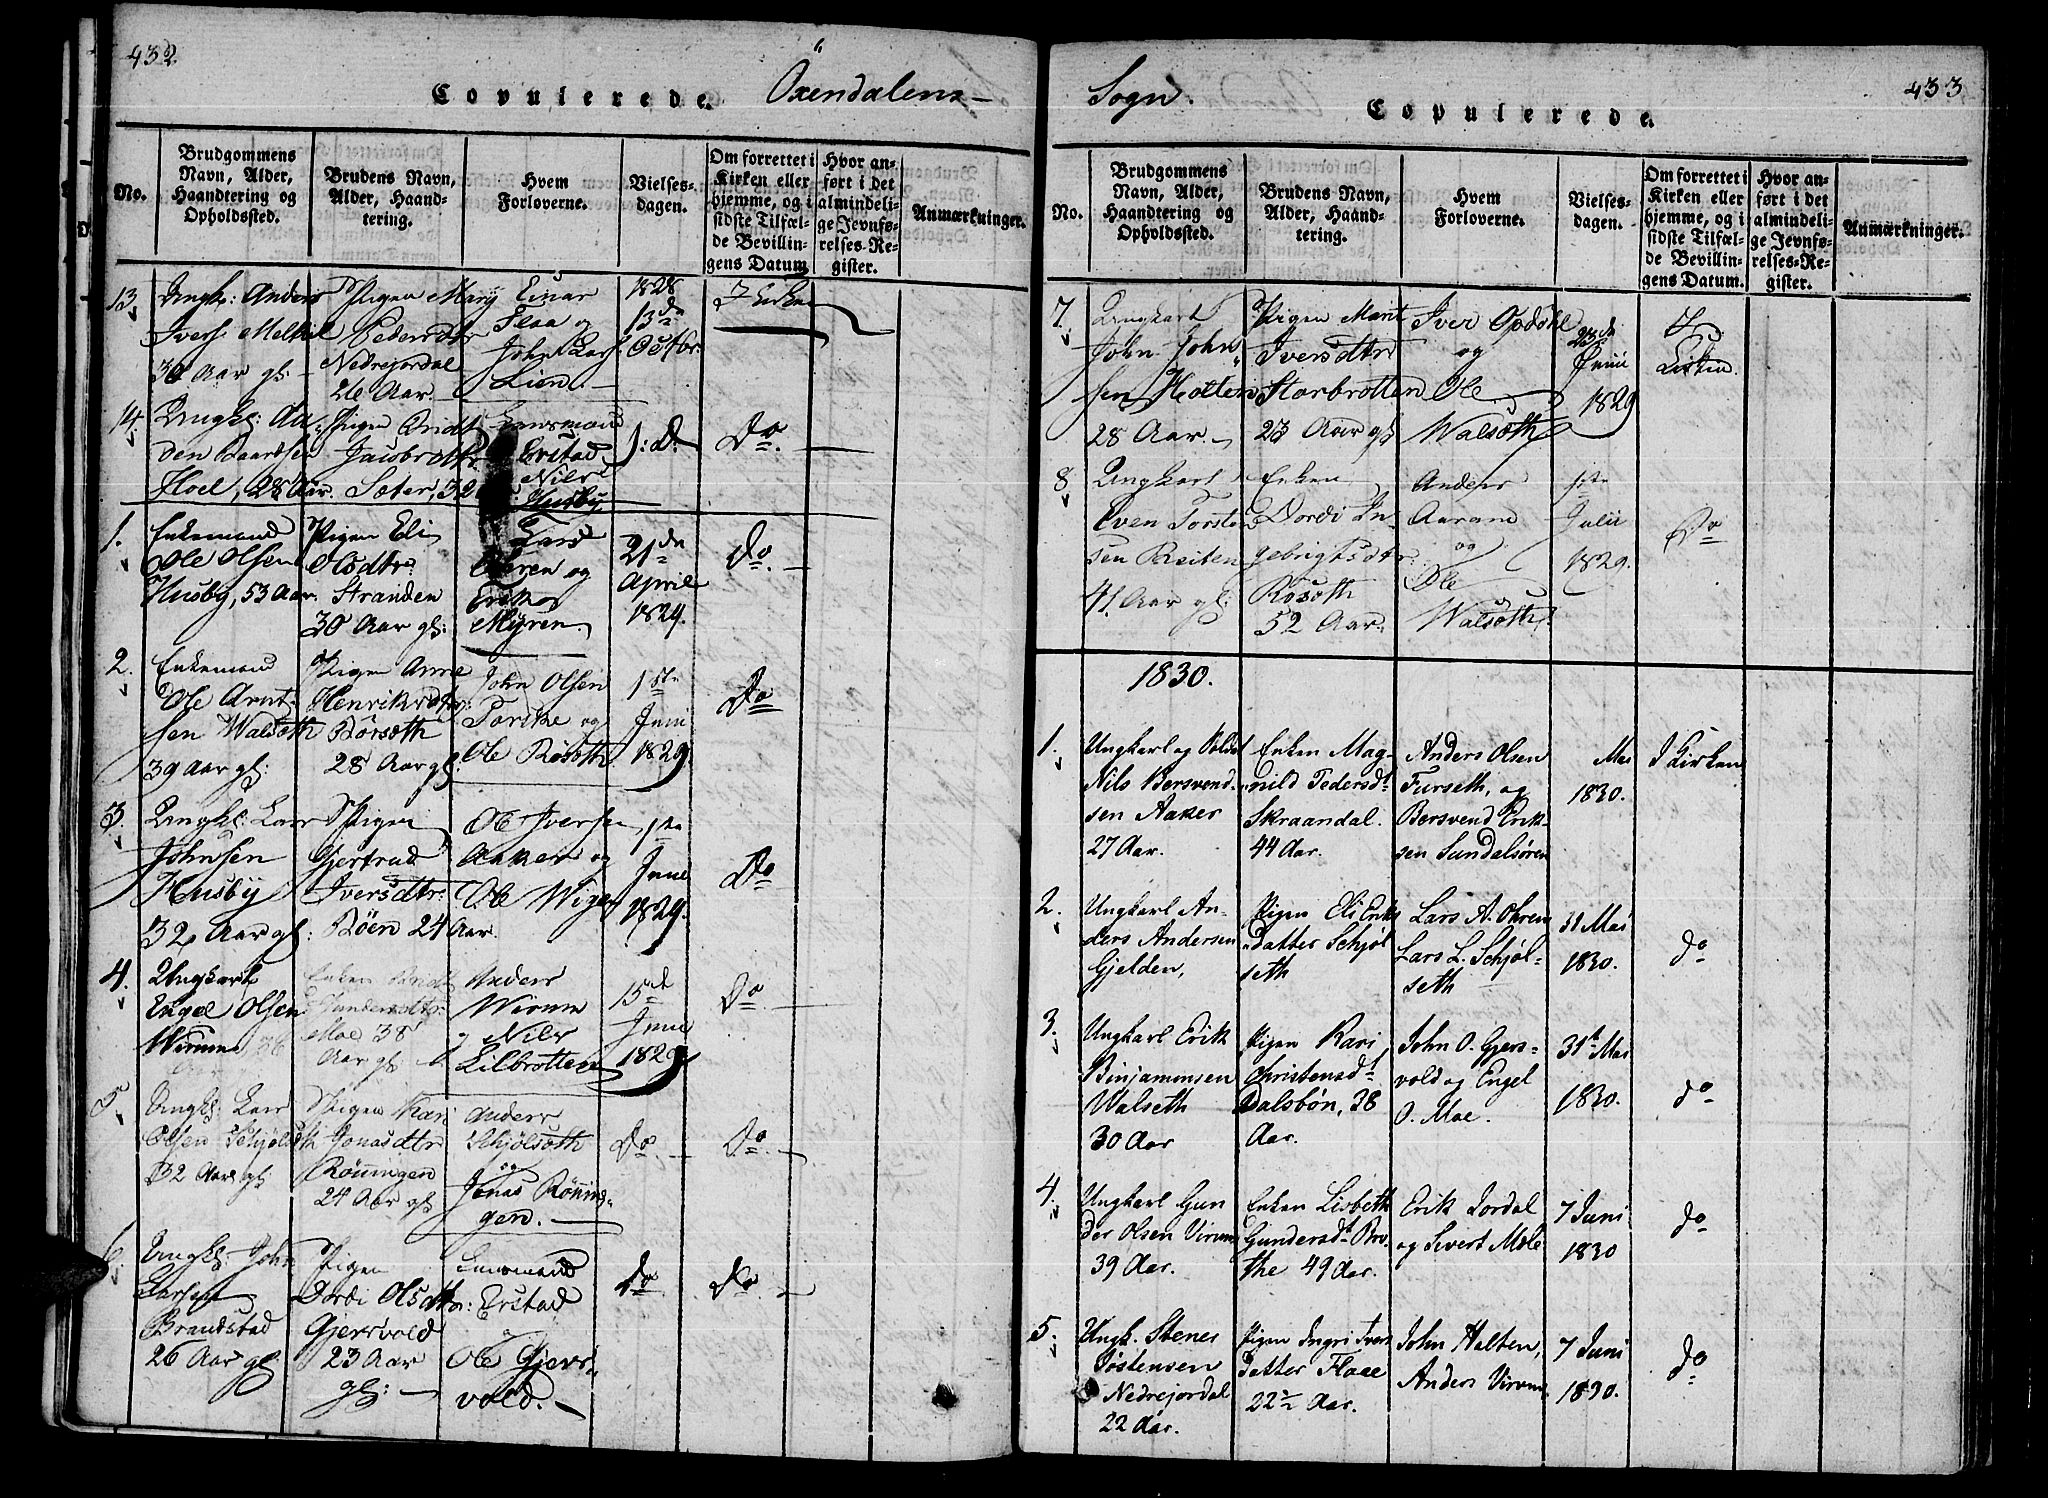 432
Copulerede. Öxendalens
No.
Brudgommens
Navn, Alder,
Haandtering og
Opholdssted.
Brudens Navn,
Alder, Haand-
tering.
Hvem
Forloverne.
Vielses-
dagen.
Om forrettet i
Kirken eller
hjemme, og i
sidste Tilfæl-
de Bevillin-
gens Datum.
Hvor an-
ført i det
almindeli-
ge Jevnfø-
relses-Re-
gister.
Anmærkninger.
13
Ungk: Anders
Iverse Melkil
30 Aar gl:
Pigen Marij
Pedersdtr
Nedrejordal
26 Aar.
Einar
Flaa og
John Lars
Lien.
1828
13de
Octbr.
I Kirken
14.
Ungk: Au-
den Baardsen
Hoel, 28 Aar.
Pigen Bridt
Jacobsdtr
Sæter, 32
Lensmand
Erstad
Nils
Husby
J: D.
Do.
1.
Enkemand
Ole Olsen
Husby, 53 Aar.
Pigen Eli
Olsdtr:
Stranden
30 Aar gl:
Lars
Øeren og
Erik
Myren.
21de
April
1829.
Do.
2.
Enkemand
Ole Arnt-
sen Walsøth
39 Aar gl:
Pigen Anne
Henriksdtr:
Börsøth
28 Aar gl:
John Olsen
Torske og
Ole Rösøth
1ste
Juni
1829.
Do
3.
Ungk: Lars
Johnsen
Husby
32 Aar gl:
Pigen
Gjertrud
Iversdtr:
Böen 24 Aar.
Ole Iversen
Aaker og
Ole Wigen
1ste
June
1829.
Do
4.
Ungkarl
Engel Olsen
Wirum 36
Aar
Enken Bridt
Gundersdtr:
Moe 38
Aar gl:
Anders
Wirum
og Nils
Lilbrotten
15de
June
1829
Do.
5
Ungk: Lars
Olsen Schjölsøth
32 Aar gl
Pigen Kari
Jonasdtr
Rönningen
24 Aar gl
Anders
Schjölsøth
og
Jonas Rönnin-
gen.
Do.
Do.
6.
Ungk: John
Larsen
Brandstad
26 Aar gl
Pigen
Dordi Olsdtr:
Gjersvold
23 Aar
gl:
Lensmand
Erstad
og
Ole Gjers-
vold.
Do
Do.
433
Sogn. Copulerede.
No.
Brudgommens
Navn, Alder,
Haandtering og
Opholdssted.
Brudens Navn,
Alder, Haand-
tering.
Hvem
Forloverne.
Vielses-
dagen.
Om forrettet i
Kirken eller
hjemme, og i
sidste Tilfæl-
de Bevillin-
gens Datum.
Hvor an-
ført i det
almindeli-
ge Jevnfø-
relses-Re-
gister.
Anmærkninger.
7.
Ungkarl
John John-
sen Holten
28 Aar
Pigen Marit
Iversdtr
Storbrotten
23 Aar gl
Iver Opdøhl
og
Ole
Walsøth
23de
Junii
1829
I
Kirken.
8
Ungkarl
Even Torste-
sen Breiten
41 Aar gl:
Enken
Dordi In-
gebrigtsdtr
Rösøth
52 Aar.
Anders
Aaram
og
Ole
Walsøth.
1ste
Julii
1829.
Do
1830.
1.
Ungkarl og Soldat
Nils Bersvend-
sen Aaker
27 Aar.
Enken Mag-
nild Pedersdt
Skraandal.
44 Aar.
Anders Olsen
Furseth, og
Bersvend Erik-
sen Sundalsören
Mai
1830.
I Kirken
2.
Ungkarl An-
ders Andersen
Gjelden,
Pigen Eli Eriks
datter Schjöl
seth
Lars A. Ohren
Lars L. Schjöl-
seth
31 Mai
1830.
do
3.
Ungkarl Erik
Binjaminsen
Walseth
30 Aar
Pigen Kari
Christensdt
Dalsbön, 38
Aar.
John O. Gjers-
vold og Engel
O. Moe.
31t Mai
1830.
do
4.
Ungkarl Gun
der Olsen Virum
39 Aar.
Enken Lisbeth
Gundersdt Bro-
the 49 Aar.
Erik Jordal
og Sivert Moe
7 Juni
1830
do
5.
Ungk. Stener
Söstensen
Nedrejordal
22 Aar.
Pigen Ingri Ivers
datter Flaae
22½ Aar.
John Halten,
Anders Virum,
7 Juni
1830.
do